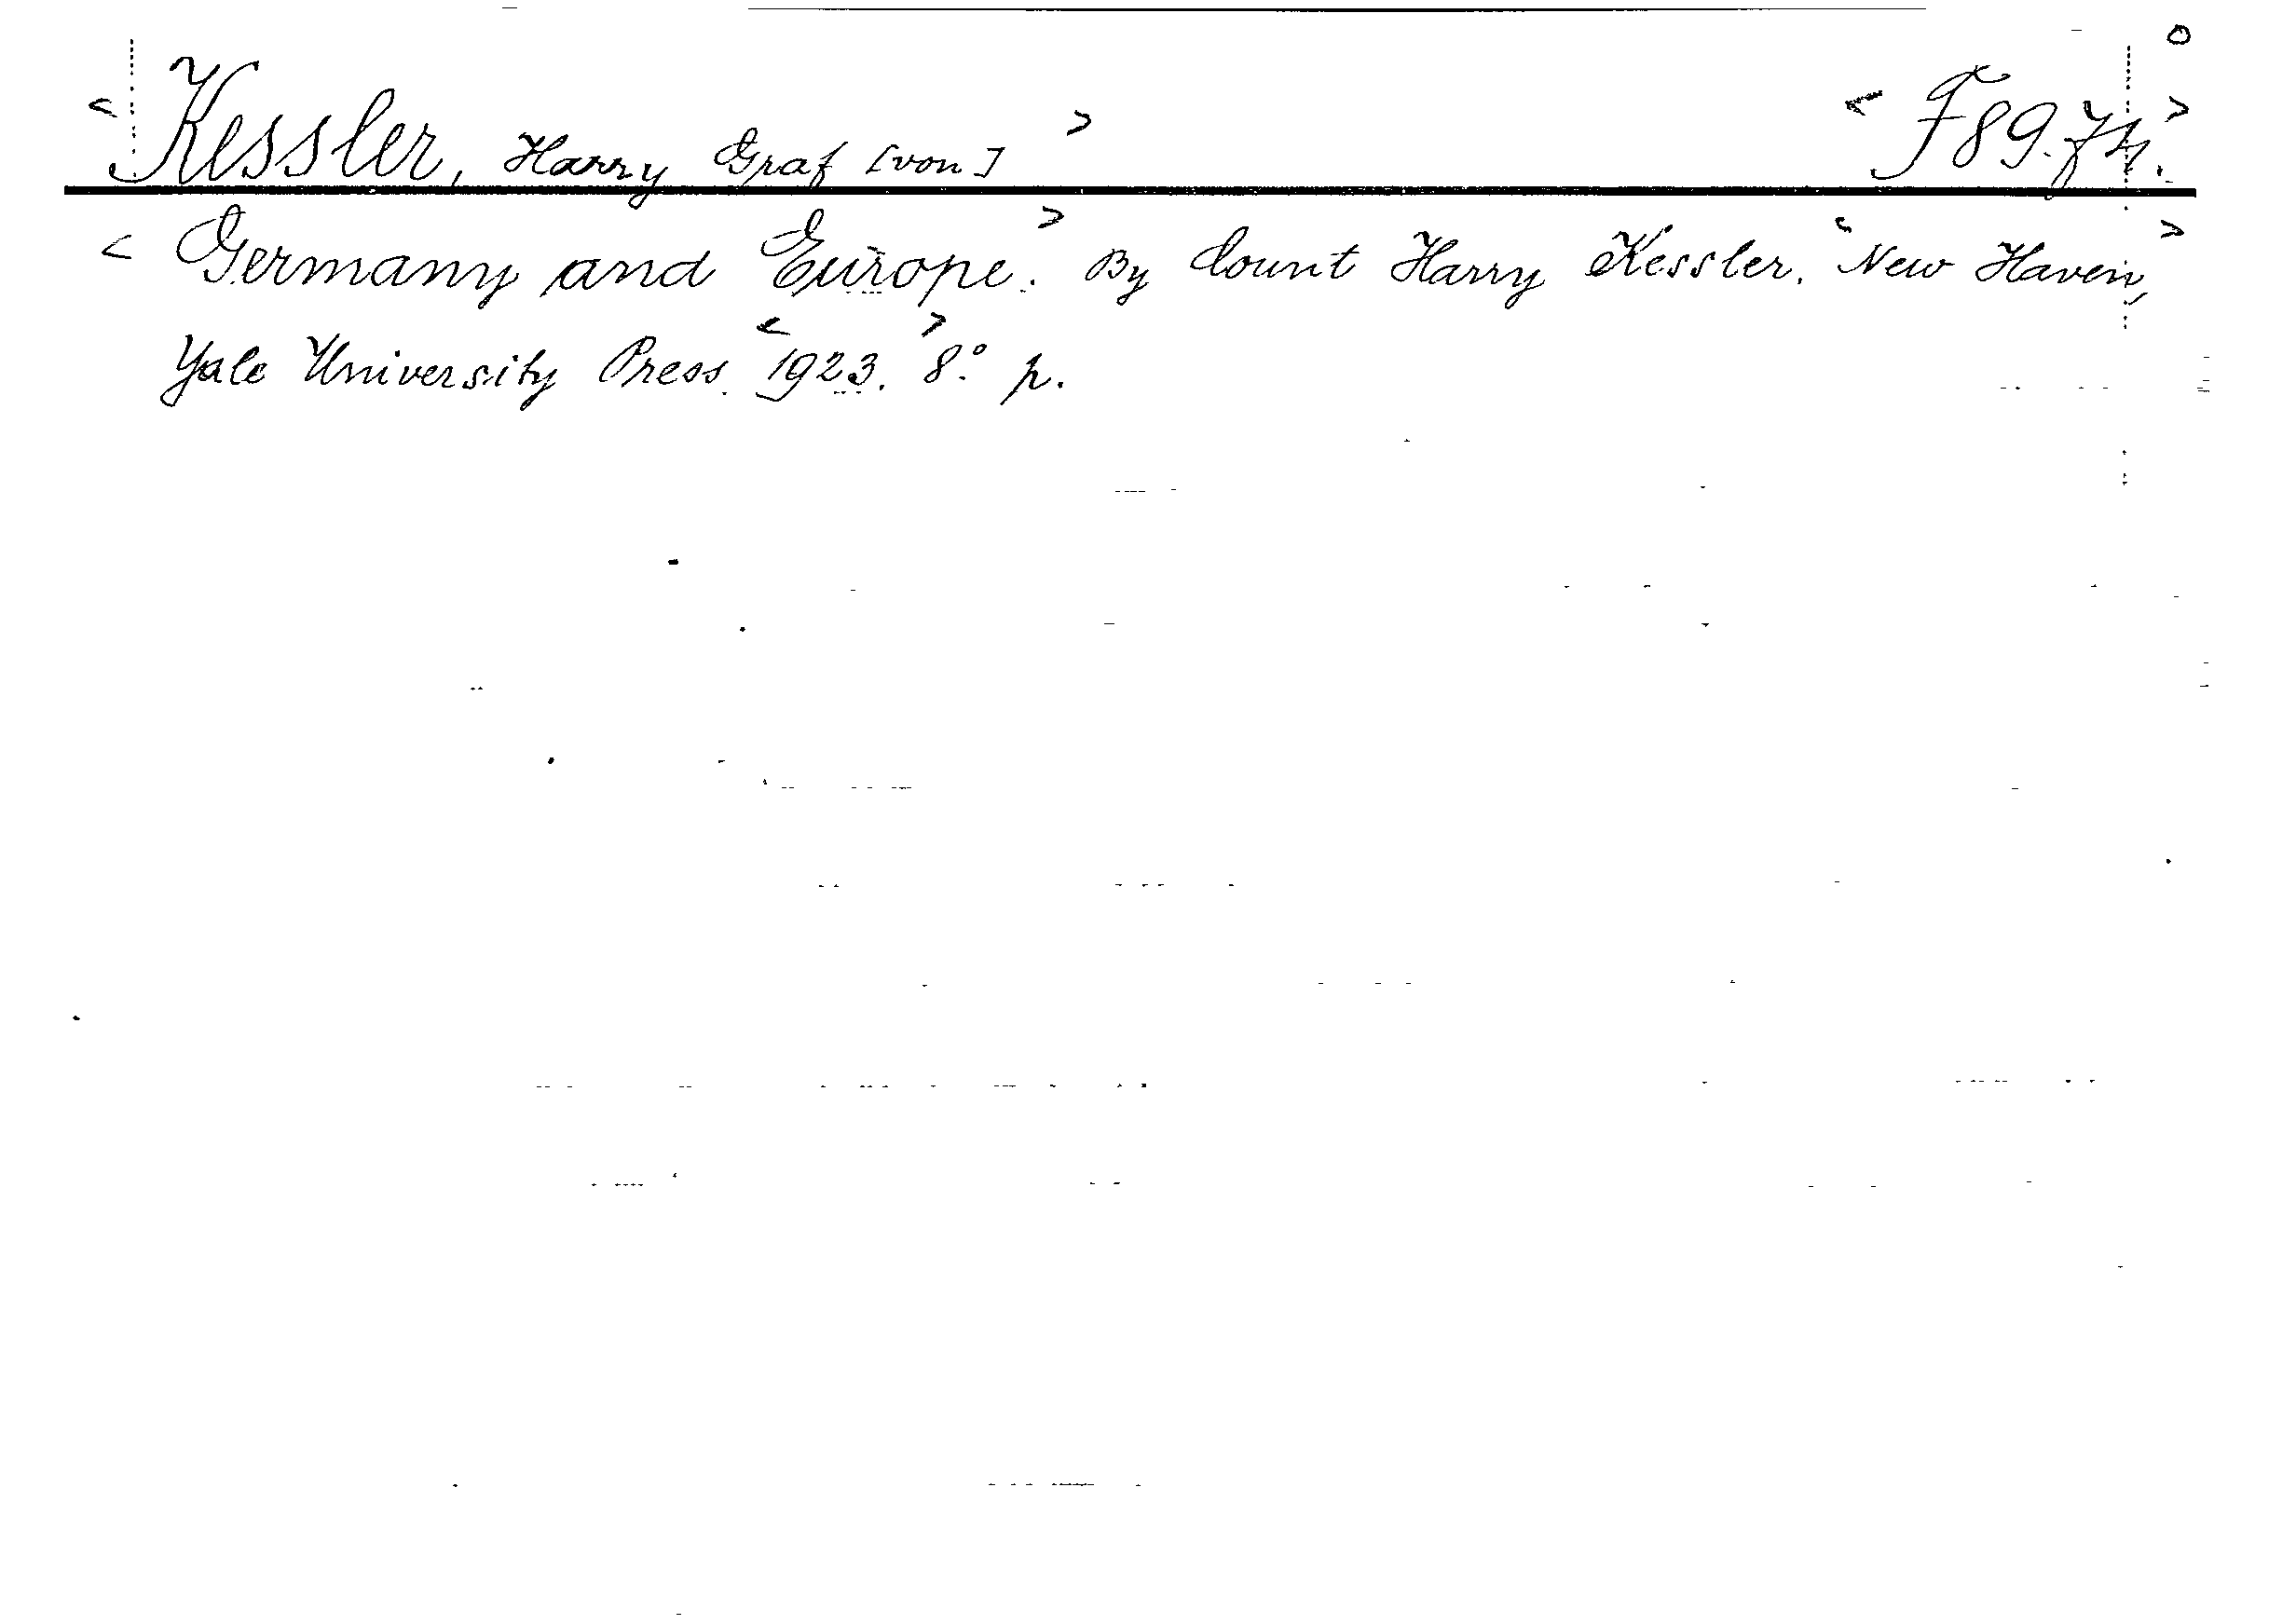 < Kessler, Harry Graf [von] > < F89.74. >
< Germany and Europe. > By Count Harry Kessler. < New Haven, >
Yale University Press. < 1923. > 8.° p.